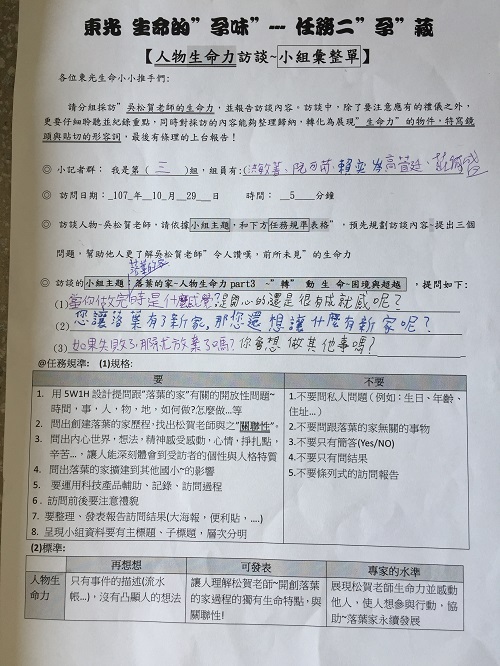 東光 生命的"孕味"--- 任務二"孕"藏
【人物生命力訪談~小組彙整單】
各位東光生命小小推手們:
請分組採訪"吳松賀老師的生命力，並報告訪談內容。訪談中，除了要注意應有的禮儀之外，
更要仔細聆聽並紀錄重點，同時對採訪的內容能夠整理歸納，轉化為展現"生命力"的物件，特寫鏡
頭與貼切的形容詞，最後有條理的上台報告！
◎ 小記者群： 我是第(三)組，組員有:(
◎ 訪問日期:_107_年_10_月_29_日 時間：_5_分鐘
◎ 訪談人物~吳松賀老師，請依據小組主題，和下方任務規準表格"，預先規劃訪談內容~提出三個
問題，幫助他人更了解吳松賀老師"令人讚嘆，前所未見"的生命力
落葉的家
◎ 訪談的小組主題：落葉的家~人物生命力 part3 ~"轉" 動 生 命~困境與超越，提問如下:
(1)當你做完時是什麼感覺?是開心的還是很有成就感呢?
(2)您讓落葉有了新家,那您還想讓什麼有新家呢?
(3)如果失敗了,那就放棄了嗎?你會想做其他事嗎?
@任務規準: (1)規格:
要 不要
1. 用 5W1H 設計提問跟"落葉的家"有關的開放性問題~
時間，事，人，物，地，如何做?怎麼做...等
2. 問出創建落葉的家歷程,找出松賀老師與之"關聯性"。
3. 問出內心世界，想法，精神感受感動，心情，掙扎點，
辛苦...，讓人能深刻體會到受訪者的個性與人格特質
4. 問出落葉的家擴建到其他國小~的影響
5. 要運用科技產品輔助、記錄、訪問過程
6. 訪問前後要注意禮貌
7. 要整理、發表報告訪問結果(大海報，便利貼，....)
8. 呈現小組資料要有主標題、子標題，層次分明
1.不要問私人問題（例如:生日、年齡、
住址...)
2.不要問跟落葉的家無關的事物
3.不要只有簡答(Yes/NO)
4.不要只有問結果
5.不要條列式的訪問報告
(2)標準:
再想想 可發表 專家的水準
人物生
命力
只有事件的描述(流水
帳...)，沒有凸顯人的想法
讓人理解松賀老師~開創落葉
的家過程的獨有生命特點，與
關聯性!
展現松賀老師生命力並感動
他人，使人想參與行動，協
助~落葉家永續發展